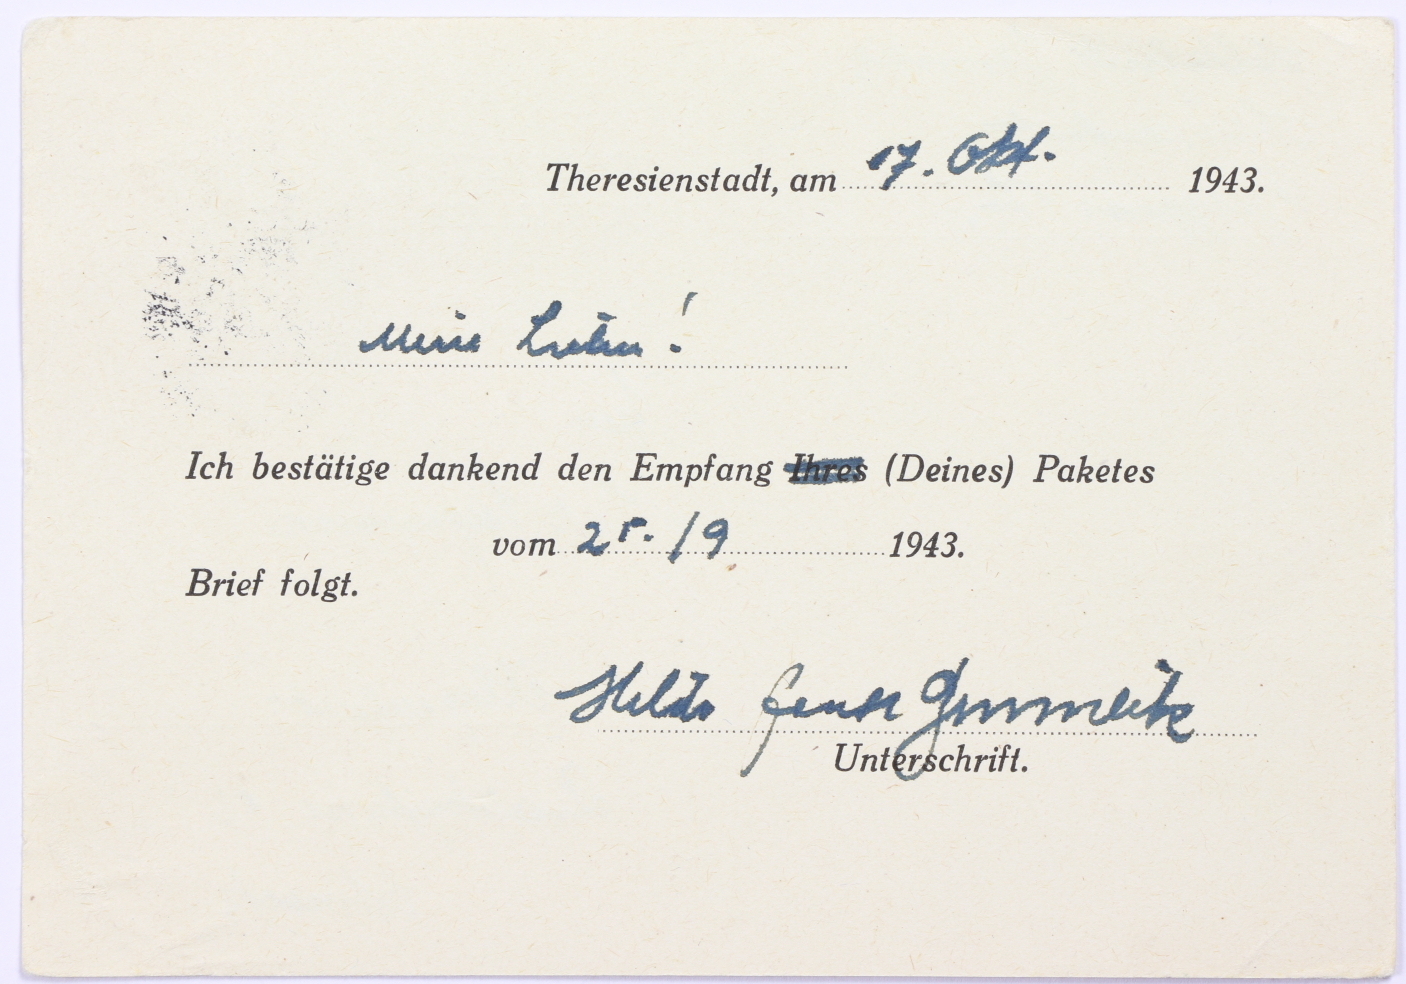 Theresienstadt, am 17. Okt. 1943.
Meine Lieben!
Ich bestätige dankend den Empfang Ihres (Deines) Paketes
vom 25./9 1943.
Brief folgt.
Hilde
Unterschrift.